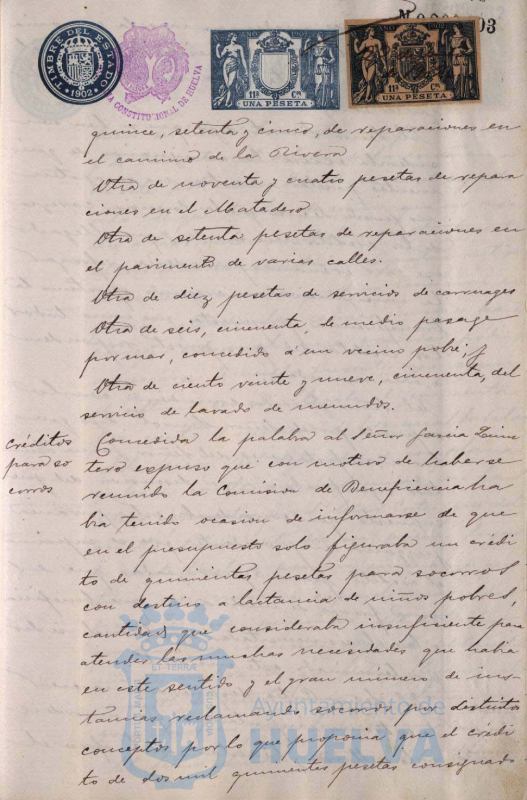 TIMBRE DEL ESTADO
1902
CONSTITUCIONAL DE HUELVA
AÑO 1902
11ª Cª
UNA PESETA
AÑO 1902
11ª Cª
UNA PESETA
93
quince, setenta y cinco, de reparaciones en
el camino de la Rivera
Otra de noventa y cuatro pesetas de repara
ciones en el Matadero.
Otra de setenta pesetas de reparaciones en
el pavimento de varias calles.
Otra de diez pesetas de servicios de carruages
Otra de seis, cincuenta, de medio pasage
por mar, concedido á un vecino pobre; y
Otra de ciento veinte y nueve, cincuenta, del
servicio de lavado de menudos.
Créditos
para so
corros
Concedida la palabra al Señor García Quin
tero expuso que con motivo de haberse
reunido la Comision de Beneficencia ha
bia tenido ocasion de informarse de que
en el presupuesto solo figuraba un crédi
to de quinientas pesetas para socorros
con destino a lactancia de niños pobres,
cantidad que consideraba insuficiente para
atender las muchas necesidades que habia
en este sentido y el gran número de ins
tancias reclamando socorros por distintos
conceptos por lo que proponia que el crédi
to de dos mil quinientas pesetas consignado
Ayuntamiento de
HUELVA